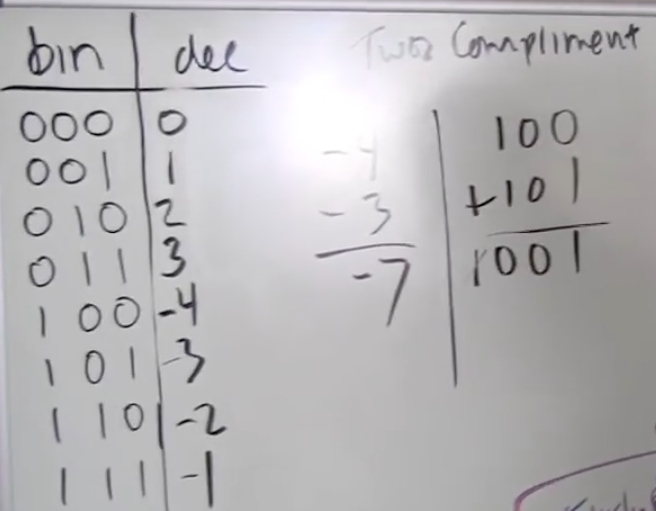 bin dec
000 0
001 1
010 2
011 3
100 -4
101 -3
110 -2
111 -1
Twos Compliment
-4
-3
-7
100
+101
1001